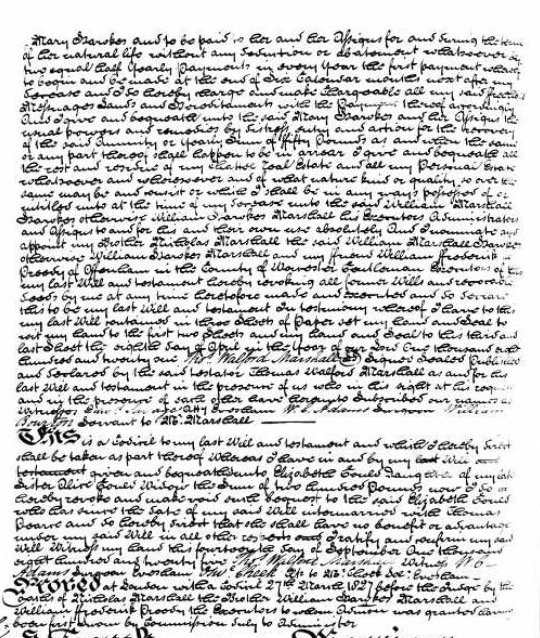 Mary Hawkes and to be paid to her and her Assigns for and during the term
of her natural life without any deduction or abatement whatsoever by
two equal half Yearly payments in every Year the first payment whereof
to begin and be made at the end of Six Calendar months next after my
Decease and I do hereby charge and make chargeable all my said freehold
Messuages Lands and Hereditaments with the payment thereof accordingly
And I give and bequeath unto the said Mary Hawkes and her Assigns the
usual powers and remedies by distress entry and action for the recovery
of the said Annuity or Yearly Sum of fifty Pounds as and when the same
or any part thereof shall happen to be in arrear I give and bequeath all
the rest and residue of my Estates Real Estate and all my Personal Estate
whatsoever and wheresoever and of what nature kind or quality so ever the
same may be and consist or which I shall be in any ways possessed of or
entitled unto at the time of my decease unto the said William Marshall
Hawkes otherwise William Hawkes Marshall his Executors Administrators
and Assigns to and for his and their own use absolutely And I nominate and
appoint my Brother Nicholas Marshall the said William Marshall Hawkes
otherwise William Hawkes Marshall and my friend William Frederick
Preedy of Offenham in the County of Worcester Gentleman Executors of this
my last Will and testament hereby revoking all former Wills and
by me at any time heretofore made and executed and do declare
this to be my last Will and testament In testimony whereof I have to this
my last Will contained in three Sheets of Paper set my hand and Seal to
wit my hand to the first two Sheets and my hand and Seal to this third and
last Sheet the eighth day of April in the Year of our Lord One thousand eight
hundred and twenty one Thos Walford Marshall Signed Sealed Published
and declared by the said testator Thomas Walford Marshall as and for his
last Will and testament in the presence of us who in his sight at his request
and in the presence of each other have hereunto subscribed our names as
Witnesses Atty Evesham Wm Adams Surgeon William
Servant to Mr. Marshall
This is a Codicil to my last Will and testament and which I hereby direct
shall be taken as part thereof Whereas I have in and by my last Will and
testament given and bequeathed unto Elizabeth Gould daughter of my late
Sister Olive Gould Widow the Sum of two hundred Pounds now I do
hereby revoke and make void such bequest to the said Elizabeth Gould
who has since the date of my said Will intermarried with Thomas
Pearce and do hereby direct that she shall have no benefit or advantage
under my said Will in all other respects I ratify and confirm my said
Will Witness my hand this fourteenth day of September One thousand
eight hundred and twenty two Thos Walford Marshall Witness Wm
Adams Surgeon Evesham Cheek Clk to Mr. Cheek Solr. Evesham
Proved at London with a Codicil 27th March 1827 before the Judge by the
oaths of Nicholas Marshall the Brother William Hawkes Marshall and
William Frederick Preedy the Executors to whom Admon was granted having
been first sworn by Commission duly to Administer